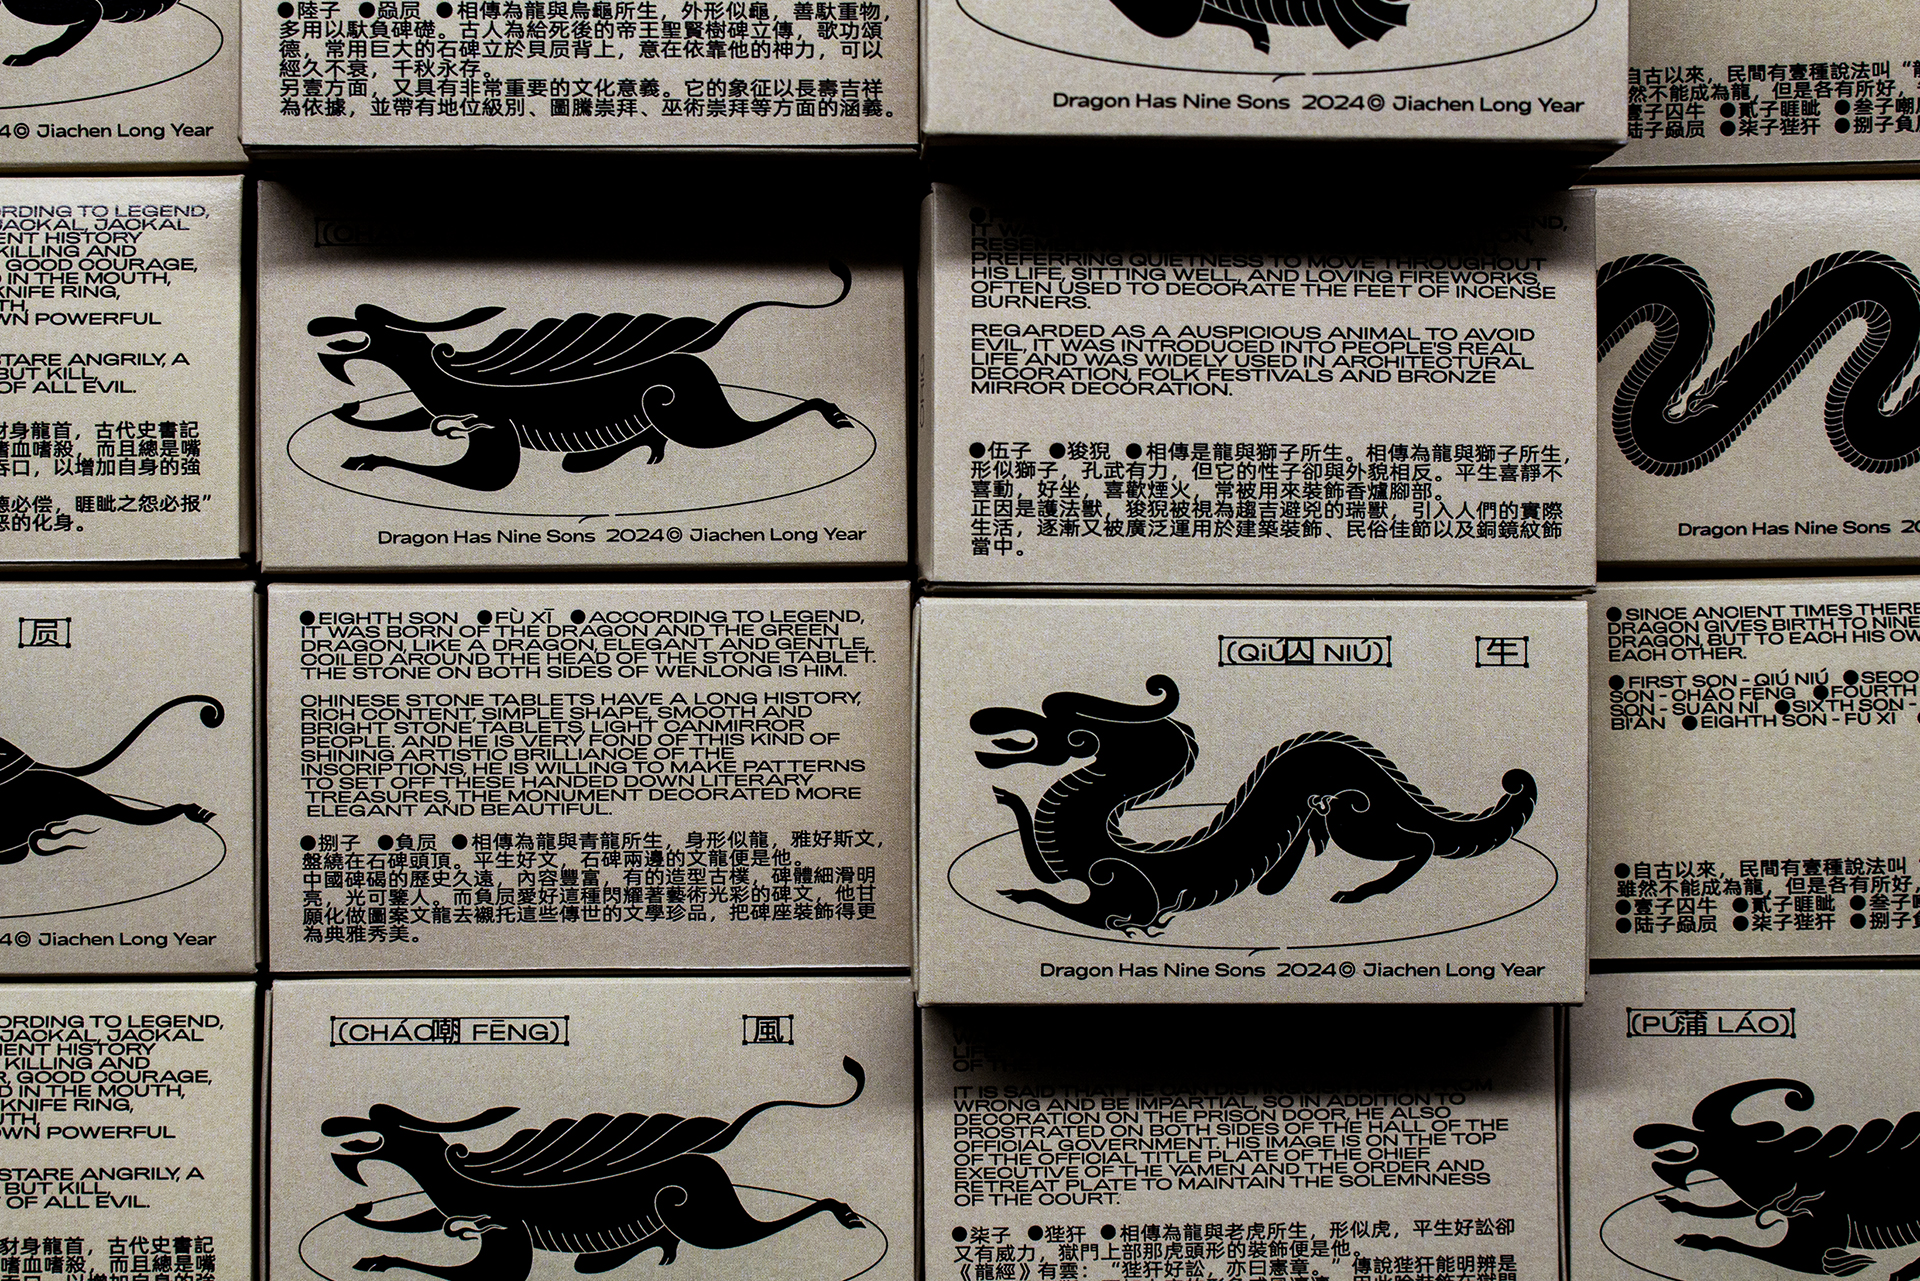 ●陸子 ●贔屃 ●相傳為龍與烏龜所生，外形似龜，善馱重物，
多用以馱負碑礎。古人為給死後的帝王聖賢樹碑立傳，歌功頌
德，常用巨大的石碑立於貝屃背上，意在依靠他的神力，可以
經久不衰，千秋永存。
另壹方面，又具有非常重要的文化意義。它的象征以長壽吉祥
為依據，並帶有地位級別、圖騰崇拜、巫術崇拜等方面的涵義。
4© Jiachen Long Year
Dragon Has Nine Sons 2024© Jiachen Long Year
自古以來，民間有壹種說法叫“龍
然不能成為龍，但是各有所好，
壹子囚牛 ●貳子睚眦 ●叁子嘲
陆子贔屃 ●柒子狴犴 ●捌子負
RDING TO LEGEND,
JACKAL, JACKAL
ENT HISTORY
KILLING AND
GOOD COURAGE,
IN THE MOUTH,
KNIFE RING,
TH,
WN POWERFUL
STARE ANGRILY, A
BUT KILL,
OF ALL EVIL.
豺身龍首，古代史書記
嗜血嗜殺，而且總是嘴
吞口，以增加自身的強
德必偿，睚眦之怨必报”
惡的化身。
Dragon Has Nine Sons 2024© Jiachen Long Year
PREFERRING QUIETNESS TO MOVE THROUGHOUT
HIS LIFE, SITTING WELL, AND LOVING FIREWORKS,
OFTEN USED TO DECORATE THE FEET OF INCENSE
BURNERS.
REGARDED AS A AUSPICIOUS ANIMAL TO AVOID
EVIL, IT WAS INTRODUCED INTO PEOPLE'S REAL
LIFE, AND WAS WIDELY USED IN ARCHITECTURAL
DECORATION, FOLK FESTIVALS AND BRONZE
MIRROR DECORATION.
●伍子 ●狻猊 ●相傳是龍與獅子所生。相傳為龍與獅子所生，
形似獅子，孔武有力，但它的性子卻與外貌相反。平生喜靜不
喜動，好坐，喜歡煙火，常被用來裝飾香爐腳部。
正因是護法獸，狻猊被視為趨吉避兇的瑞獸，引入人們的實際
生活，逐漸又被廣泛運用於建築裝飾、民俗佳節以及銅鏡紋飾
當中。
Dragon Has Nine Sons 20
屃
4© Jiachen Long Year
●EIGHTH SON ●FÙ XĪ ●ACCORDING TO LEGEND,
IT WAS BORN OF THE DRAGON AND THE GREEN
DRAGON, LIKE A DRAGON, ELEGANT AND GENTLE,
COILED AROUND THE HEAD OF THE STONE TABLET.
THE STONE ON BOTH SIDES OF WENLONG IS HIM.
CHINESE STONE TABLETS HAVE A LONG HISTORY,
RICH CONTENT, SIMPLE SHAPE, SMOOTH AND
BRIGHT STONE TABLETS, LIGHT CANMIRROR
PEOPLE. AND HE IS VERY FOND OF THIS KIND OF
SHINING ARTISTIC BRILLIANCE OF THE
INSCRIPTIONS, HE IS WILLING TO MAKE PATTERNS
TO SET OFF THESE HANDED DOWN LITERARY
TREASURES, THE MONUMENT DECORATED MORE
ELEGANT AND BEAUTIFUL.
●捌子 ●負屃 ●相傳為龍與青龍所生，身形似龍，雅好斯文，
盤繞在石碑頭頂。平生好文，石碑兩邊的文龍便是他。
中國碑碣的歷史久遠，內容豐富，有的造型古樸，碑體細滑明
亮，光可鑒人。而負屃愛好這種閃耀著藝術光彩的碑文，他甘
願化做圖案文龍去襯托這些傳世的文學珍品，把碑座裝飾得更
為典雅秀美。
(QIÚ囚 NIÚ) 牛
Dragon Has Nine Sons 2024© Jiachen Long Year
●SINCE ANCIENT TIMES THERE
DRAGON GIVES BIRTH TO NINE
DRAGON, BUT TO EACH HIS OW
EACH OTHER.
●FIRST SON - QIÚ NIÚ ●SECO
SON - CHÁO FĒNG ●FOURTH
SON - SUĀN NÍ ●SIXTH SON -
BÌ'ÀN ●EIGHTH SON - FÙ XĪ
●自古以來，民間有壹種說法叫
雖然不能成為龍，但是各有所好，
●壹子囚牛 ●貳子睚眦 ●叁子
●陆子贔屃 ●柒子狴犴 ●捌子
ORDING TO LEGEND,
JACKAL, JACKAL
IENT HISTORY
KILLING AND
R, GOOD COURAGE,
D IN THE MOUTH,
KNIFE RING,
UTH,
OWN POWERFUL
STARE ANGRILY, A
BUT KILL,
OF ALL EVIL.
豺身龍首，古代史書記
嗜血嗜殺，而且總是嘴
(CHÁO嘲 FĒNG) 風
IT IS SAID THAT HE CAN DISTINGUISH RIGHT FROM
WRONG AND BE IMPARTIAL, SO IN ADDITION TO
DECORATION ON THE PRISON DOOR, HE ALSO
PROSTRATED ON BOTH SIDES OF THE HALL OF THE
OFFICIAL GOVERNMENT. HIS IMAGE IS ON THE TOP
OF THE OFFICIAL TITLE PLATE OF THE CHIEF
EXECUTIVE OF THE YAMEN AND THE ORDER AND
RETREAT PLATE TO MAINTAIN THE SOLEMNNESS
OF THE COURT.
●柒子 ●狴犴 ●相傳為龍與老虎所生，形似虎，平生好訟卻
又有威力，獄門上部那虎頭形的裝飾便是他。
《龍經》有雲：“狴犴好訟，亦曰憲章。”傳說狴犴能明辨是
(PÚ蒲 LÁO)